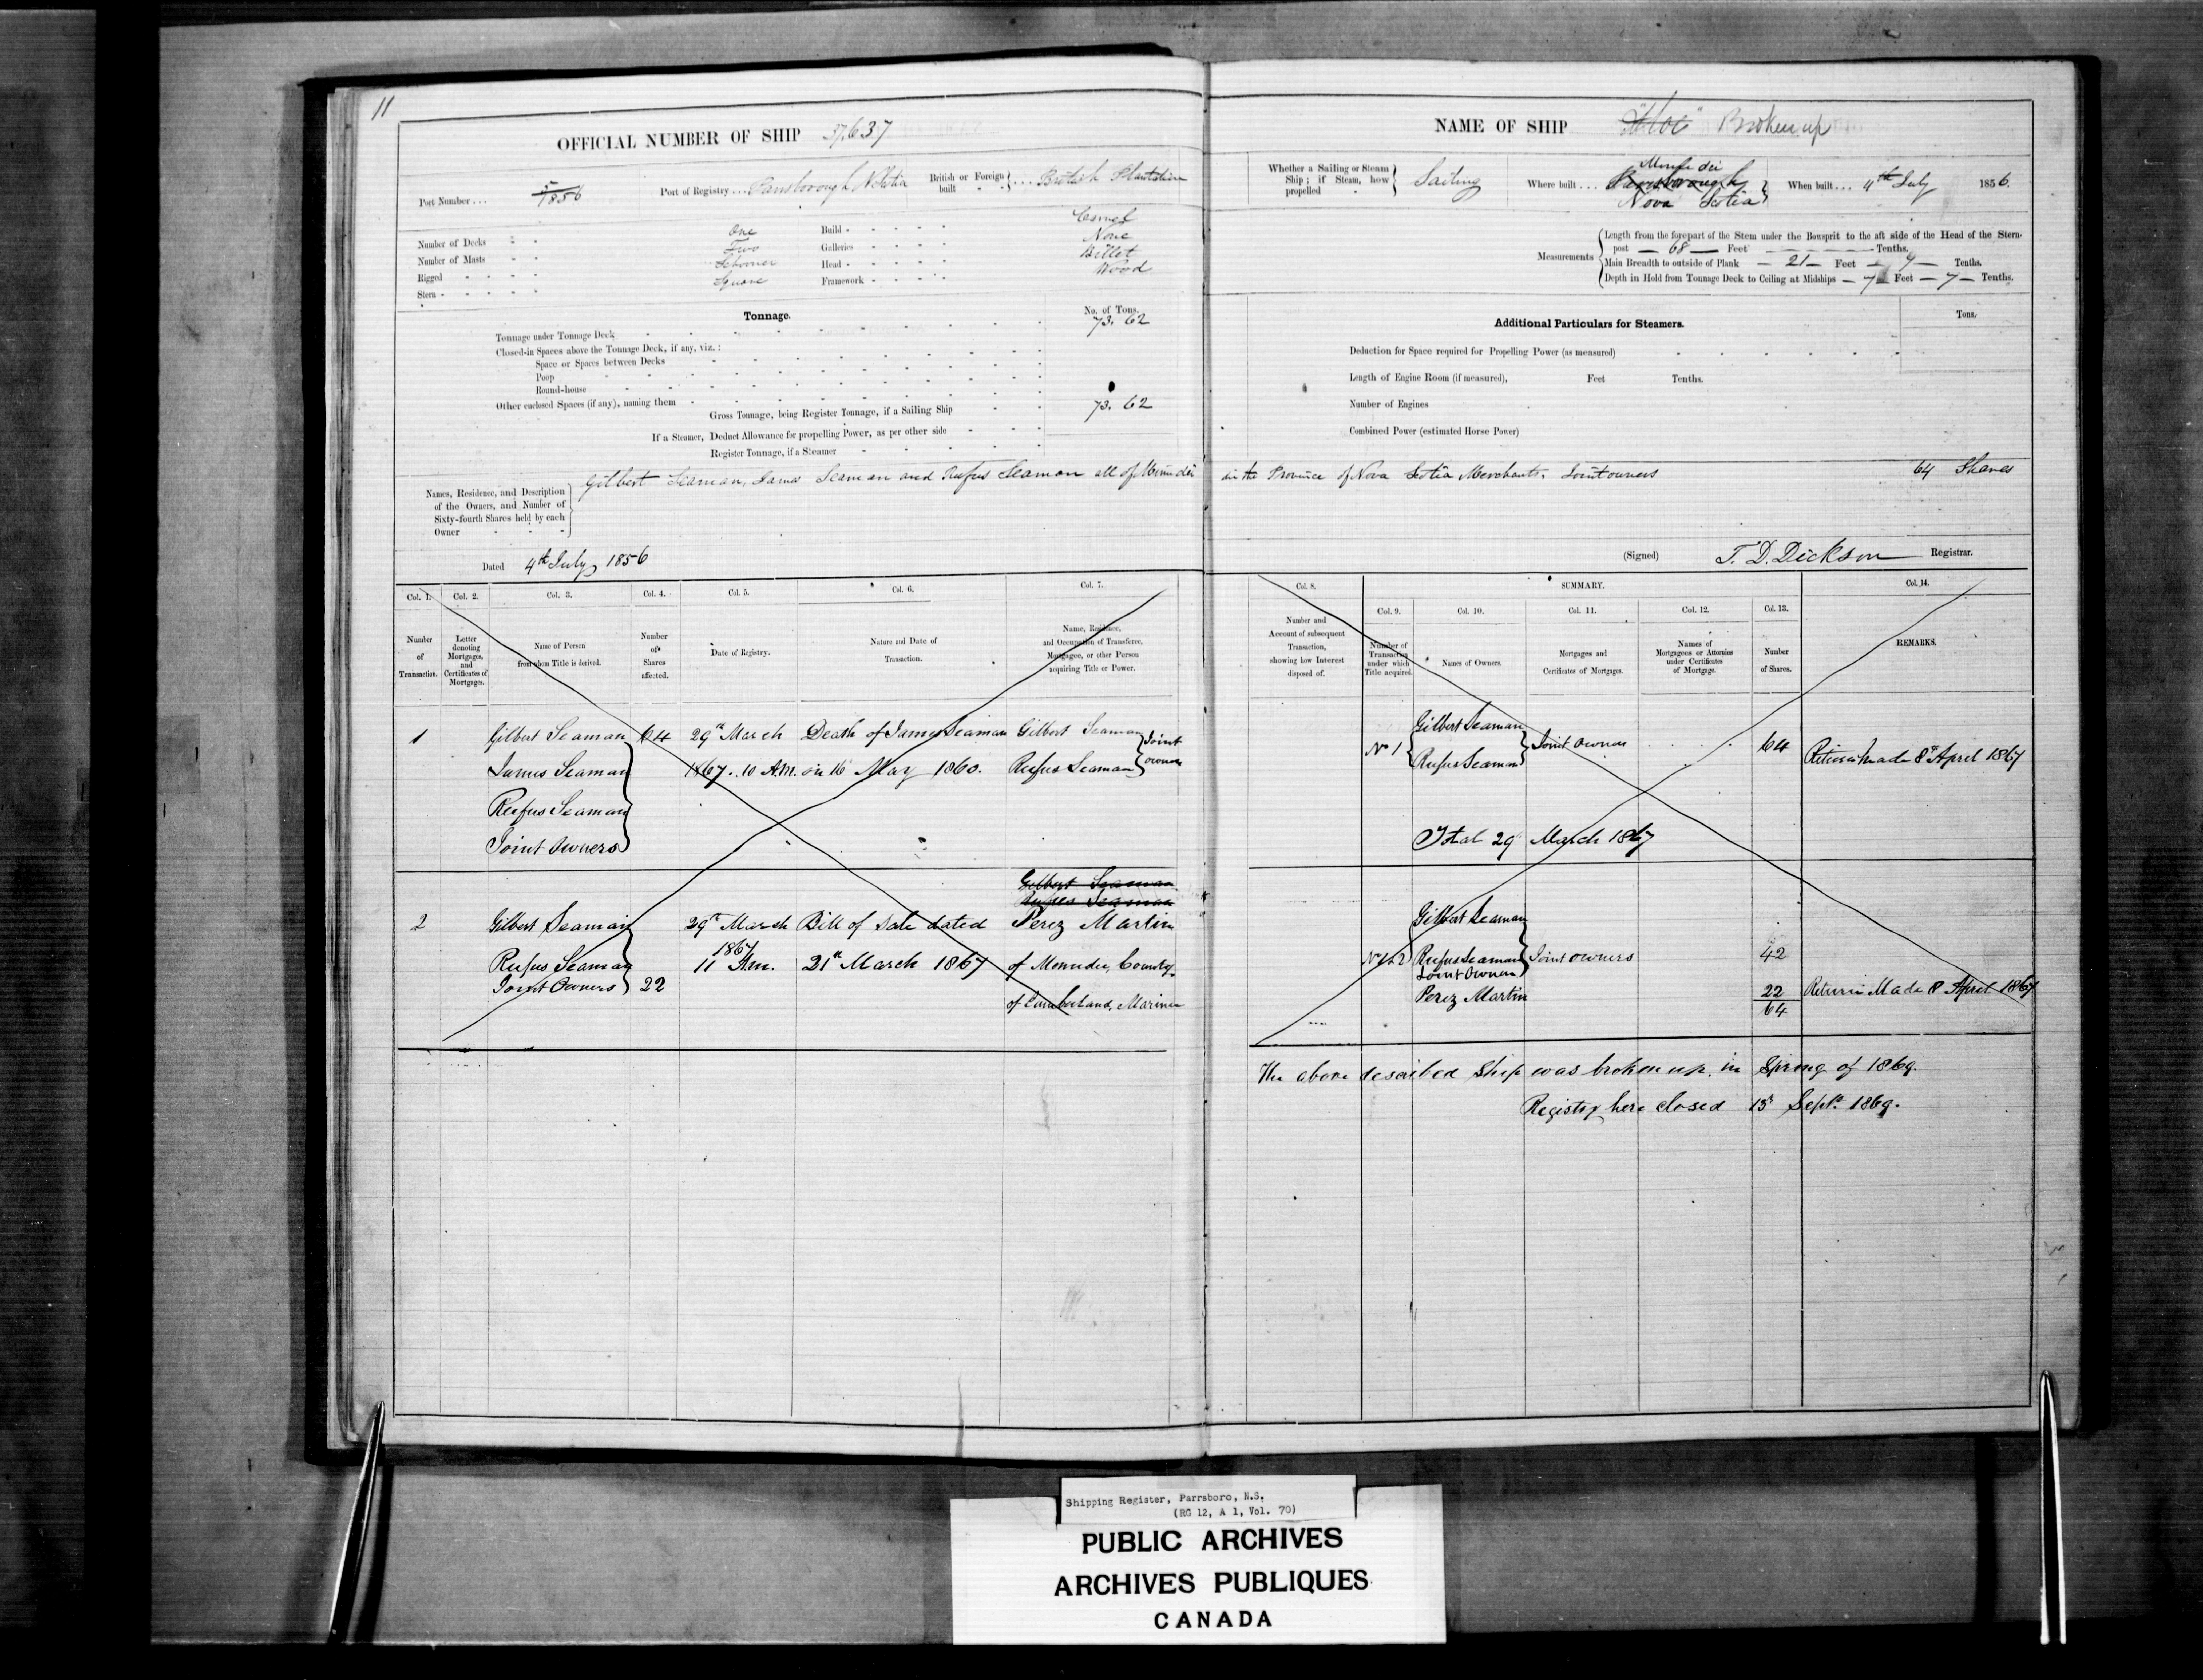 11
OFFICIAL NUMBER OF SHIP 37,637
Port Number . . . 5/1856
Port of Registry . . . Parrsborough, N Scotia
British or Foreign built . . . British Plantation
Number of Decks - - One
Number of Masts - - Two
Rigged - - - - Schooner
Stern - - - - - Square
Build - - - - - Carvel
Galleries - - - - None
Head - - - - - Billet
Framework - - - - Wood
Tonnage.
No. of Tons.
Tonnage under Tonnage Deck 73. 62
Closed-in Spaces above the Tonnage Deck, if any, viz. :
Space or Spaces between Decks
Poop
Round-house
Other enclosed Spaces (if any), naming them
Gross Tonnage, being Register Tonnage, if a Sailing Ship 73. 62
If a Steamer, Deduct Allowance for propelling Power, as per other side
Register Tonnage, if a Steamer
Names, Residence, and Description
of the Owners, and Number of
Sixty-fourth Shares held by each
Owner
Gilbert Seaman, James Seaman and Rufus Seaman all of Minudie
Dated 4th July, 1856
Col. 1. Col. 2. Col. 3. Col. 4. Col. 5. Col. 6. Col. 7.
Number of Transaction.
Letter denoting Mortgages, and Certificates of Mortgages.
Name of Person from whom Title is derived.
Number of Shares affected.
Date of Registry.
Nature and Date of Transaction.
Name, Residence, and Occupation of Transferee, Mortgagee, or other Person acquiring Title or Power.
1 Gilbert Seaman 64 29th March Death of James Seaman Gilbert Seaman Joint
James Seaman 1867. 10 A.M. on 16 May 1860. Rufus Seaman owners
Rufus Seaman
Joint Owners
Gilbert Seaman
Rufus Seaman
2 Gilbert Seaman 29th March Bill of Sale dated Perez Martin
1867
Rufus Seaman 11 A.m. 21st March 1867 of Menudie, County
Joint Owners 22
of Cumberland, Mariner
NAME OF SHIP "Floe" Broken up
Whether a Sailing or Steam Ship; if Steam, how propelled Sailing
Where built . . . Minudie
Parrsborough
Nova Scotia
When built . . . 4th July 1856.
Measurements
Length from the forepart of the Stem under the Bowsprit to the aft side of the Head of the Stern-
post — 68 — Feet — Tenths.
Main Breadth to outside of Plank — 21 — Feet — 9 — Tenths.
Depth in Hold from Tonnage Deck to Ceiling at Midships — 7 Feet — 7 — Tenths.
Additional Particulars for Steamers.
Tons.
Deduction for Space required for Propelling Power (as measured)
Length of Engine Room (if measured), Feet Tenths.
Number of Engines
Combined Power (estimated Horse Power)
in the Province of Nova Scotia Merchants, Joint owners 64 Shares
(Signed) T. D. Dickson Registrar.
Col. 8. SUMMARY. Col. 14.
Col. 9. Col. 10. Col. 11. Col. 12. Col. 13.
Number and Account of subsequent Transaction, showing how Interest disposed of.
Number of Transaction under which Title acquired.
Names of Owners.
Mortgages and Certificates of Mortgages.
Names of Mortgagees or Attornies under Certificates of Mortgage.
Number of Shares.
REMARKS.
Gilbert Seaman
No 1 Joint Owners 64 Return Made 8th April 1867
Rufus Seaman
Total 29 March 1867
Gilbert Seaman
No 1 & 2 Rufus Seaman Joint owners 42
Joint Owners
Perez Martin 22 Return Made 8 April 1867
64
The above described Ship was broken up, in Spring of 1869.
Registry here closed 15th Sept. 1869.
Shipping Register, Parrsboro, N.S.
(RG 12, A 1, Vol. 70)
PUBLIC ARCHIVES
ARCHIVES PUBLIQUES
CANADA